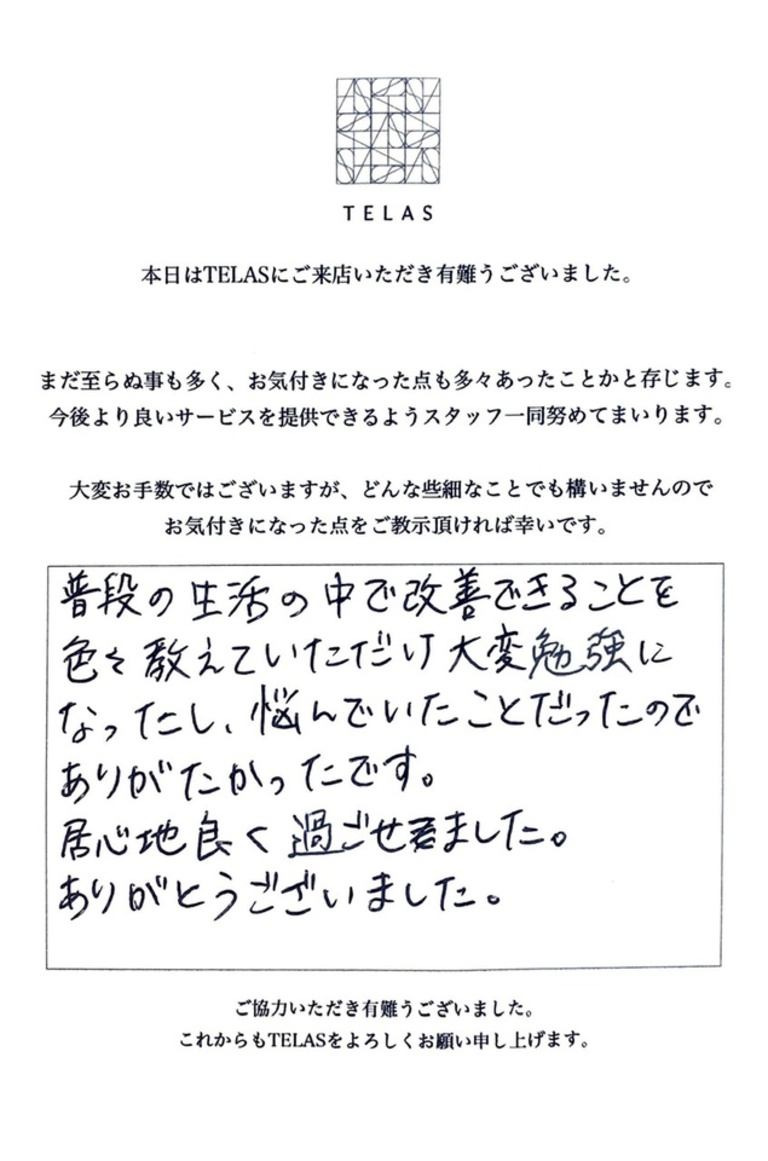 TELAS
本日はTELASにご来店いただき有難うございました。
まだ至らぬ事も多く、お気付きになった点も多々あったことかと存じます。
今後より良いサービスを提供できるようスタッフ一同努めてまいります。
大変お手数ではございますが、どんな些細なことでも構いませんので
お気付きになった点をご教示頂ければ幸いです。
普段の生活の中で改善できることを
色々教えていただけ大変勉強に
なったし、悩んでいたことだったので
ありがたかったです。
居心地良く過ごせました。
ありがとうございました。
ご協力いただき有難うございました。
これからもTELASをよろしくお願い申し上げます。